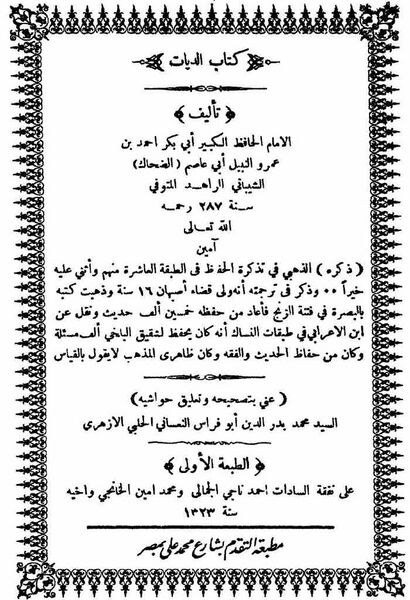 كتاب الديات
﴿ تأليف ﴾
الامام الحافظ الكبير أبي بكر احمد بن
عمرو النبيل أبي عاصم (الضحاك)
الشيباني الزاهد المتوفي
سنة ٢٨٧ رحمه
الله تعالى
آمين
( ذكره ) الذهبي في تذكرة الحفاظ في الطبقة العاشرة منهم وأثني عليه
خيراً ٠٠ وذكر في ترجمته أنه ولى قضاء أصبهان ١٦ سنة وذهبت كتبه
بالبصرة في فتنة الزنج فأعاد من حفظه خمسين ألف حديث ونقل عن
ابن الاعرابي في طبقات النساك أنه كان يحفظ لشقيق البلخي ألف مسئلة
وكان من حفاظ الحديث والفقه وكان ظاهرى المذهب لايقول بالقياس
( عني بتصحيحه وتعليق حواشيه )
السيد محمد بدر الدين أبو فراس النعساني الحلبي الازهرى
﴿ الطبعة الأولى ﴾
على نفقة السادات احمد ناجي الجمالى ومحمد امين الخانجي واخيه
سنة ١٣٢٣
مطبعة التقدم بشارع محمد علي بمصر